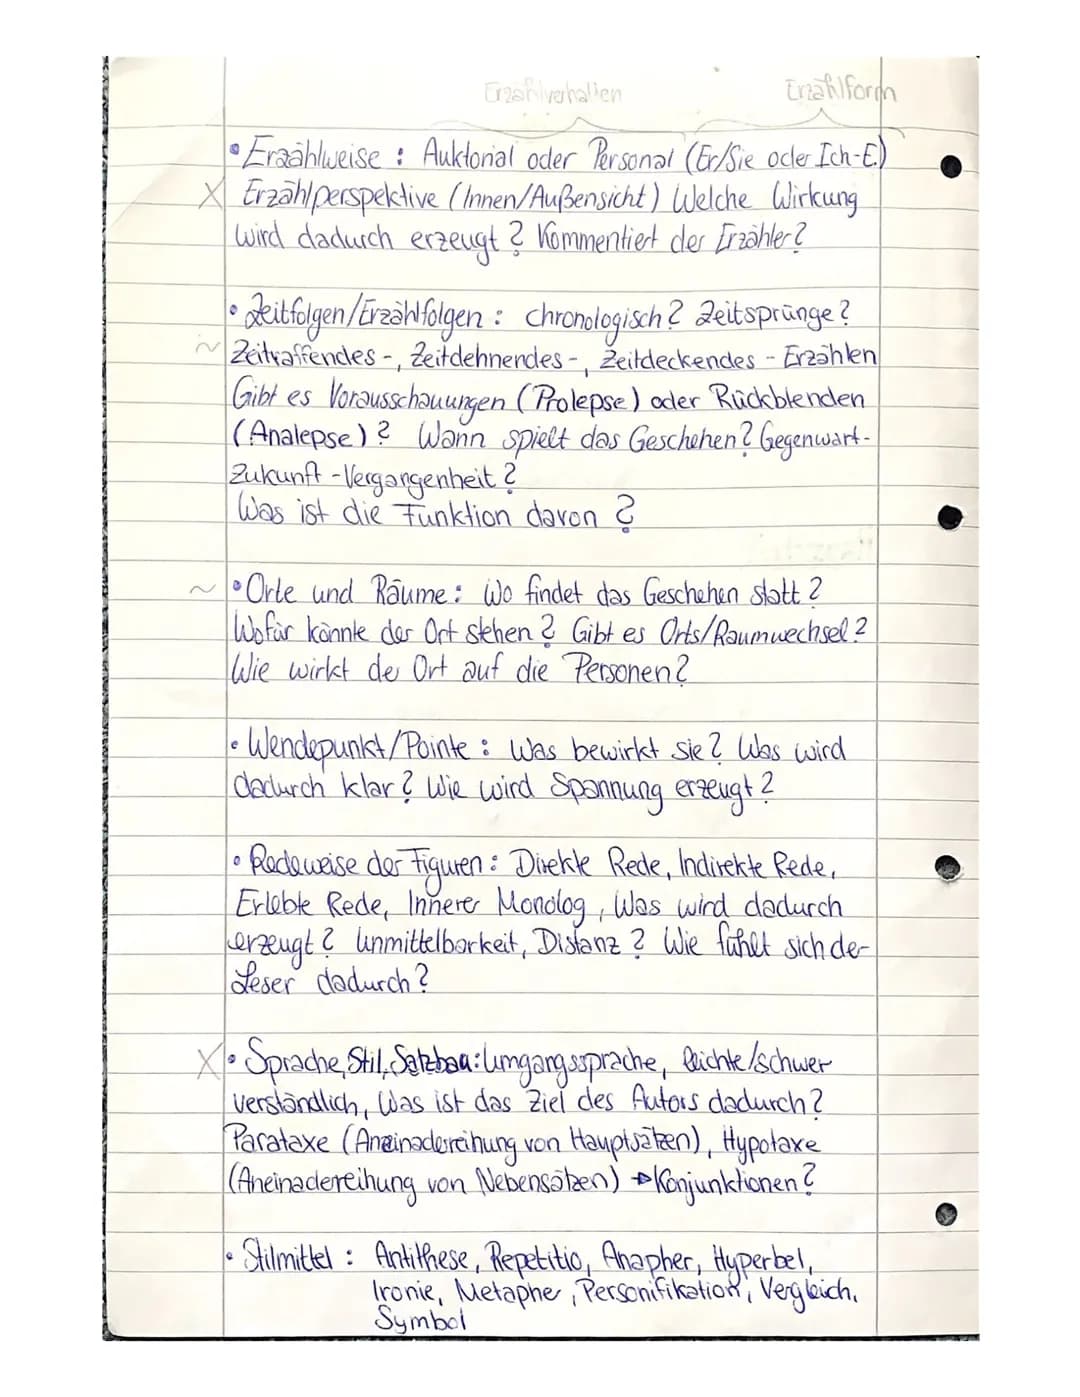 Erzählverhalten Erzählform
• Erzählweise : Auktorial oder Personal (Er/Sie oder Ich-E.)
X Erzählperspektive (Innen/Außensicht) Welche Wirkung
wird dadurch erzeugt ? Kommentiert der Erzähler?
• Zeitfolgen/Erzählfolgen : chronologisch? Zeitsprünge?
~ Zeitraffendes -, Zeitdehnendes -, Zeitdeckendes - Erzählen
Gibt es Vorausschauungen (Prolepse) oder Rückblenden
(Analepse)? Wann spielt das Geschehen? Gegenwart-
Zukunft -Vergangenheit ?
Was ist die Funktion davon ?
~ • Orte und Räume : Wo findet das Geschehen statt ?
Wofür könnte der Ort stehen ? Gibt es Orts/Raumwechsel ?
Wie wirkt der Ort auf die Personen?
• Wendepunkt/Pointe : Was bewirkt sie ? Was wird
dadurch klar ? Wie wird Spannung erzeugt ?
• Redeweise der Figuren : Direkte Rede, Indirekte Rede,
Erlebte Rede, Innerer Monolog , Was wird dadurch
erzeugt ? Unmittelbarkeit, Distanz ? Wie fühlt sich der
Leser dadurch ?
X • Sprache, Stil, Satzbau : Umgangssprache, leichte/schwer
verständlich, Was ist das Ziel des Autors dadurch ?
Parataxe (Aneinadereihung von Hauptsätzen), Hypotaxe
(Aneinadereihung von Nebensätzen) → Konjunktionen ?
• Stilmittel : Antithese, Repetitio, Anapher, Hyperbel,
Ironie, Metapher , Personifikation , Vergleich,
Symbol